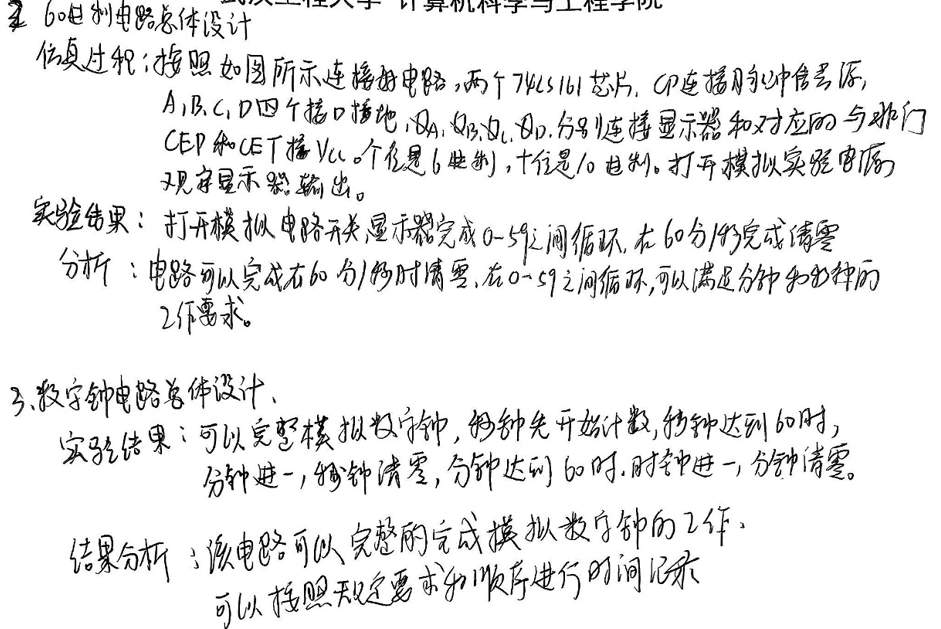 武汉工程大学 计算机科学与工程学院
2 60进制电路总体设计
仿真过程：按照如图所示连接好电路，两个74LS161芯片，CP连接脉冲信号源，
A,B,C,D四个接口接地，QA,QB,QC,QD.分别连接显示器和对应的与非门
CEP和CET接VCC。个位是6进制，十位是10进制。打开模拟实验电源
观察显示器输出。
实验结果：打开模拟电路开关，显示器完成0-59之间循环，在60分/秒完成清零
分析：电路可以完成在60分/秒时清零，在0-59之间循环，可以满足分钟和秒钟的
工作要求。
3、数字钟电路总体设计、
实验结果：可以完整模拟数字钟，秒钟先开始计数，秒钟达到60时，
分钟进一，秒钟清零，分钟达到60时.时钟进一，分钟清零。
结果分析：该电路可以完整的完成模拟数字钟的工作、
可以按照规定要求和顺序进行时间记录